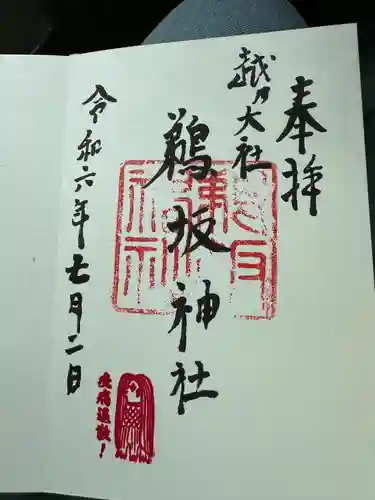 奉拝
越乃大社
鵜坂神社
令和六年七月二日
疫病退散!